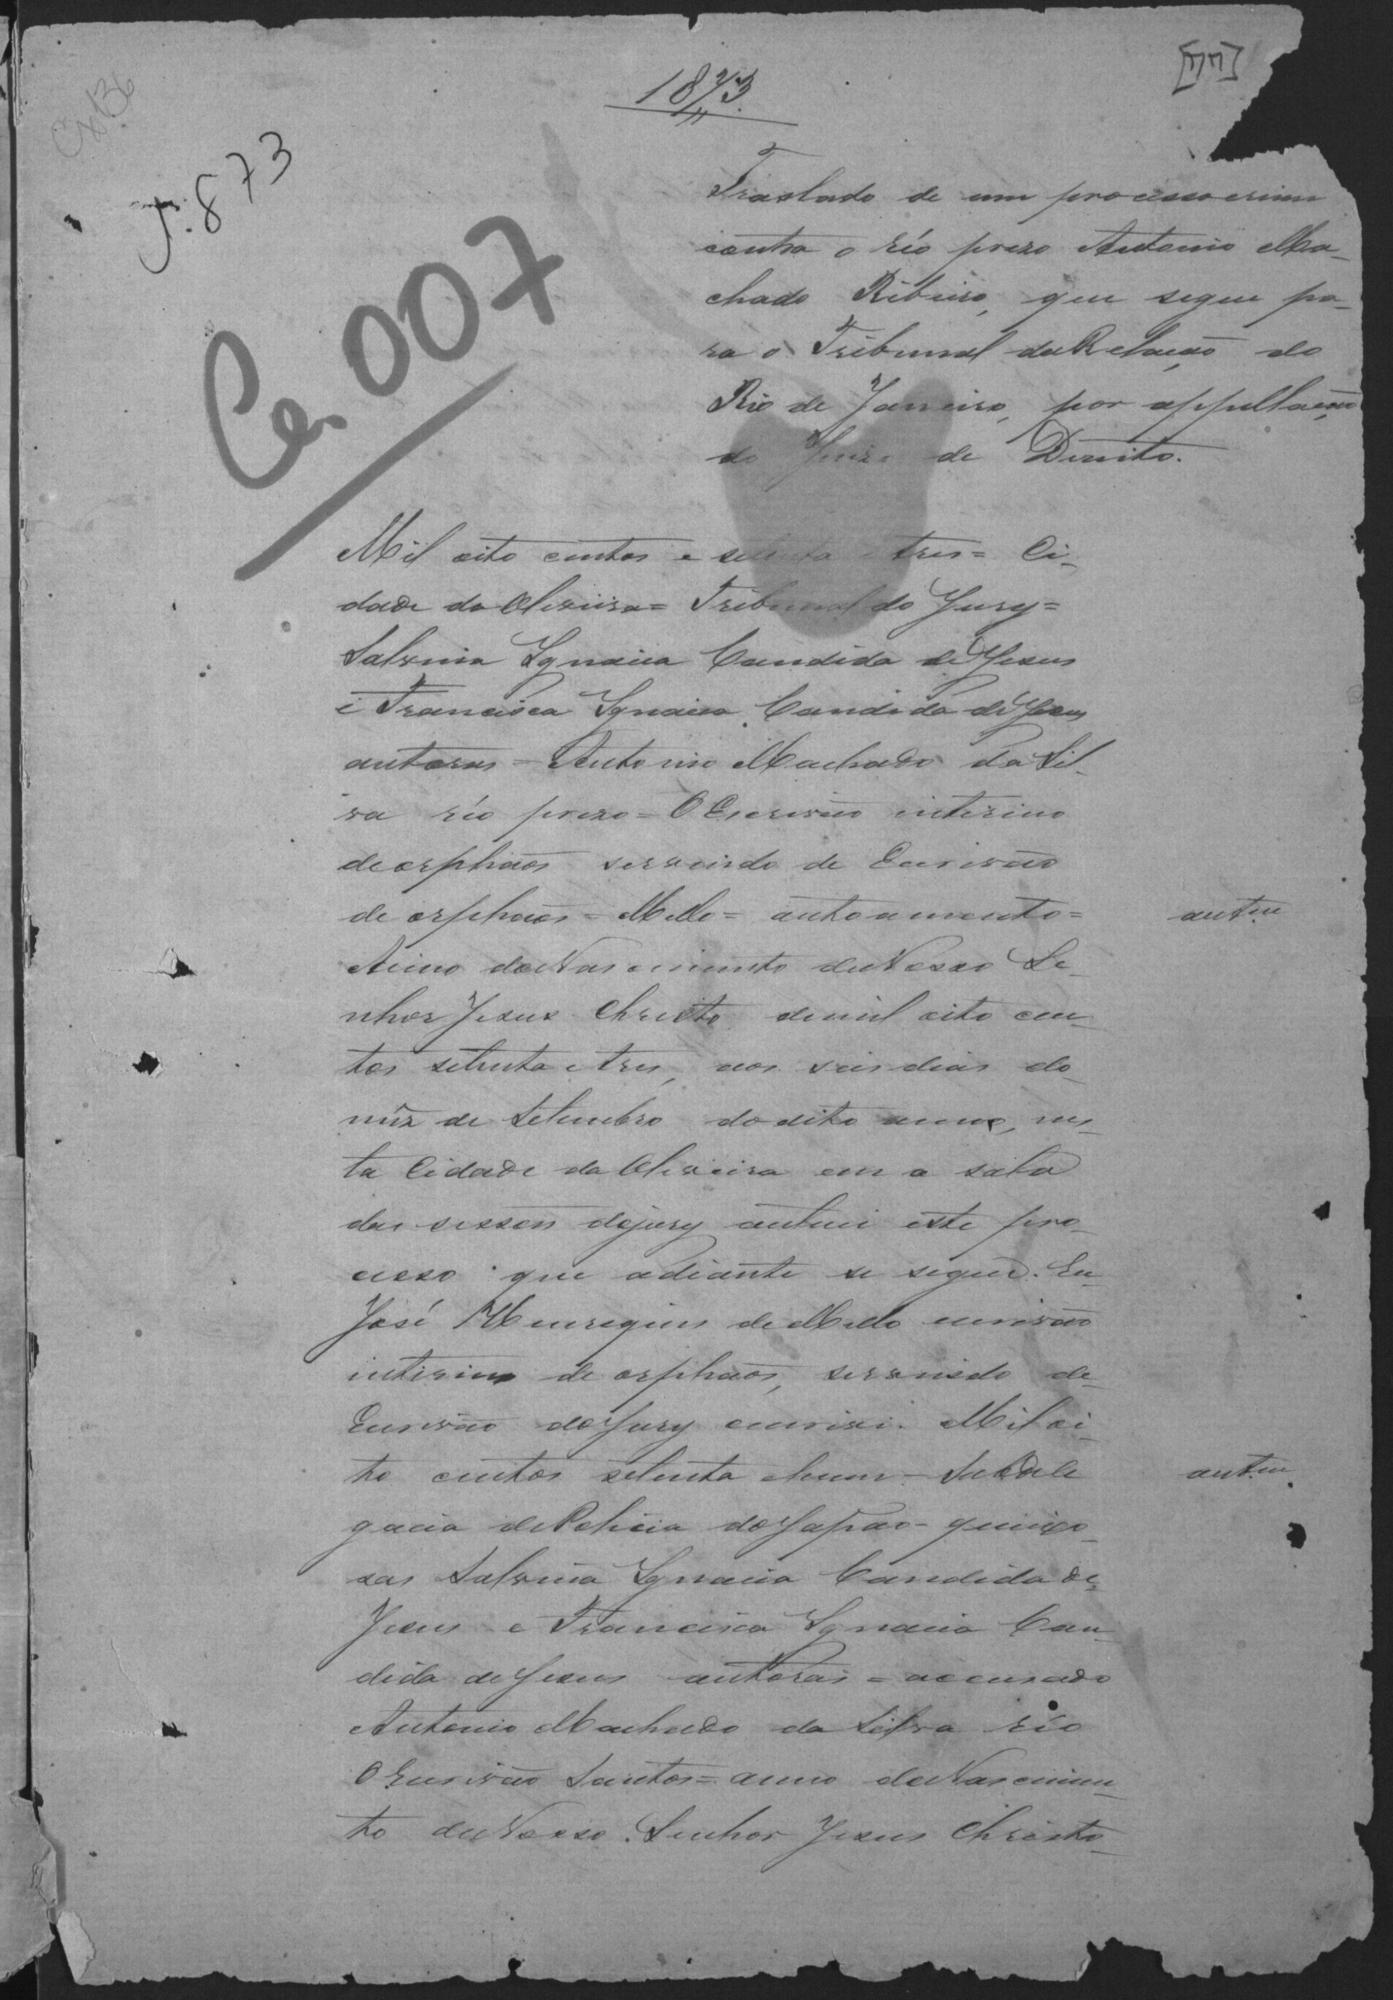 1873
[77]
Cx 36
J. 873
Ce. 007
Traslado de um processo crime
contra o réo prezo Antonio Ma-
chado Ribeiro, que segue pa-
ra o Tribunal da Relação do
Rio de Janeiro, por appellação
do Juizo de Direito.
Mil oito centos e setenta e tres = Ci-
dade da Oliveira = Tribunal do Jury =
Salvina Ignacia Candida de Jesus
e Francisca Ignacia Candida de Jesus
autoras = Antonio Machado da Sil-
va réo prezo = O Escrivão interino
de orphãos servindo de Escrivão
de orphãos = Mello = autoamento =
autm.
Anno do Nascimento de Nosso Se-
nhor Jesus Christo de mil oito cen-
tos setenta e tres, aos seis dias do
mez de Setembro do dito anno, nes-
ta Cidade da Oliveira em a sala
das sessoes do jury autuei este pro-
cesso que adiante se segue. Eu
José Henriques de Mello escrivão
interino de orphãos, servindo de
Escrivão do Jury escrevi. Mil oi-
to centos setenta e hum - Subdele
autm.
gacia de Policia do Japão - queixo-
sas Salvina Ignacia Candida de
Jesus e Francisca Ignacia Can-
dida de Jesus autoras = accusado
Antonio Machado da Silva réo
O Escrivão Santos = anno do Nascimen-
to de Nosso Senhor Jesus Christo